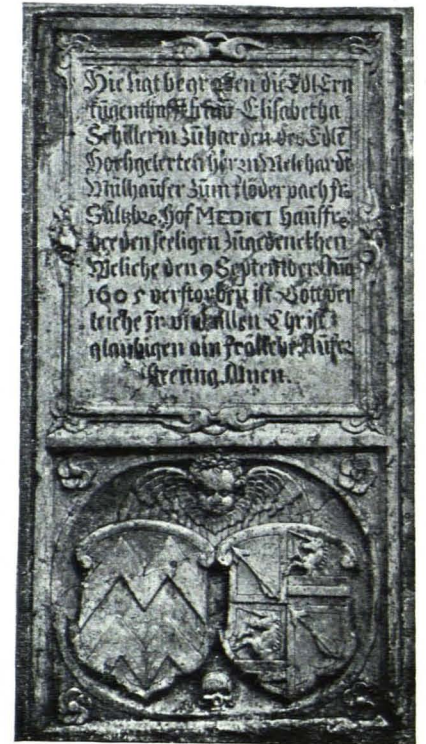 Hie ligt begraben die Edl Ern
tugenthafft frau Elisabetha
Schillerin zu harden des Edlē
Hochgelerten Herrn Melchardt
Mülhauser zum
Hof MEDICI hausfr
den seeligen zugedencthen
Weliche den 9 September Año
1605 verstorben ist Gott ver
leiche Ir und allen Christ
glaubigen ain froliche Aufer
steeung Amen.